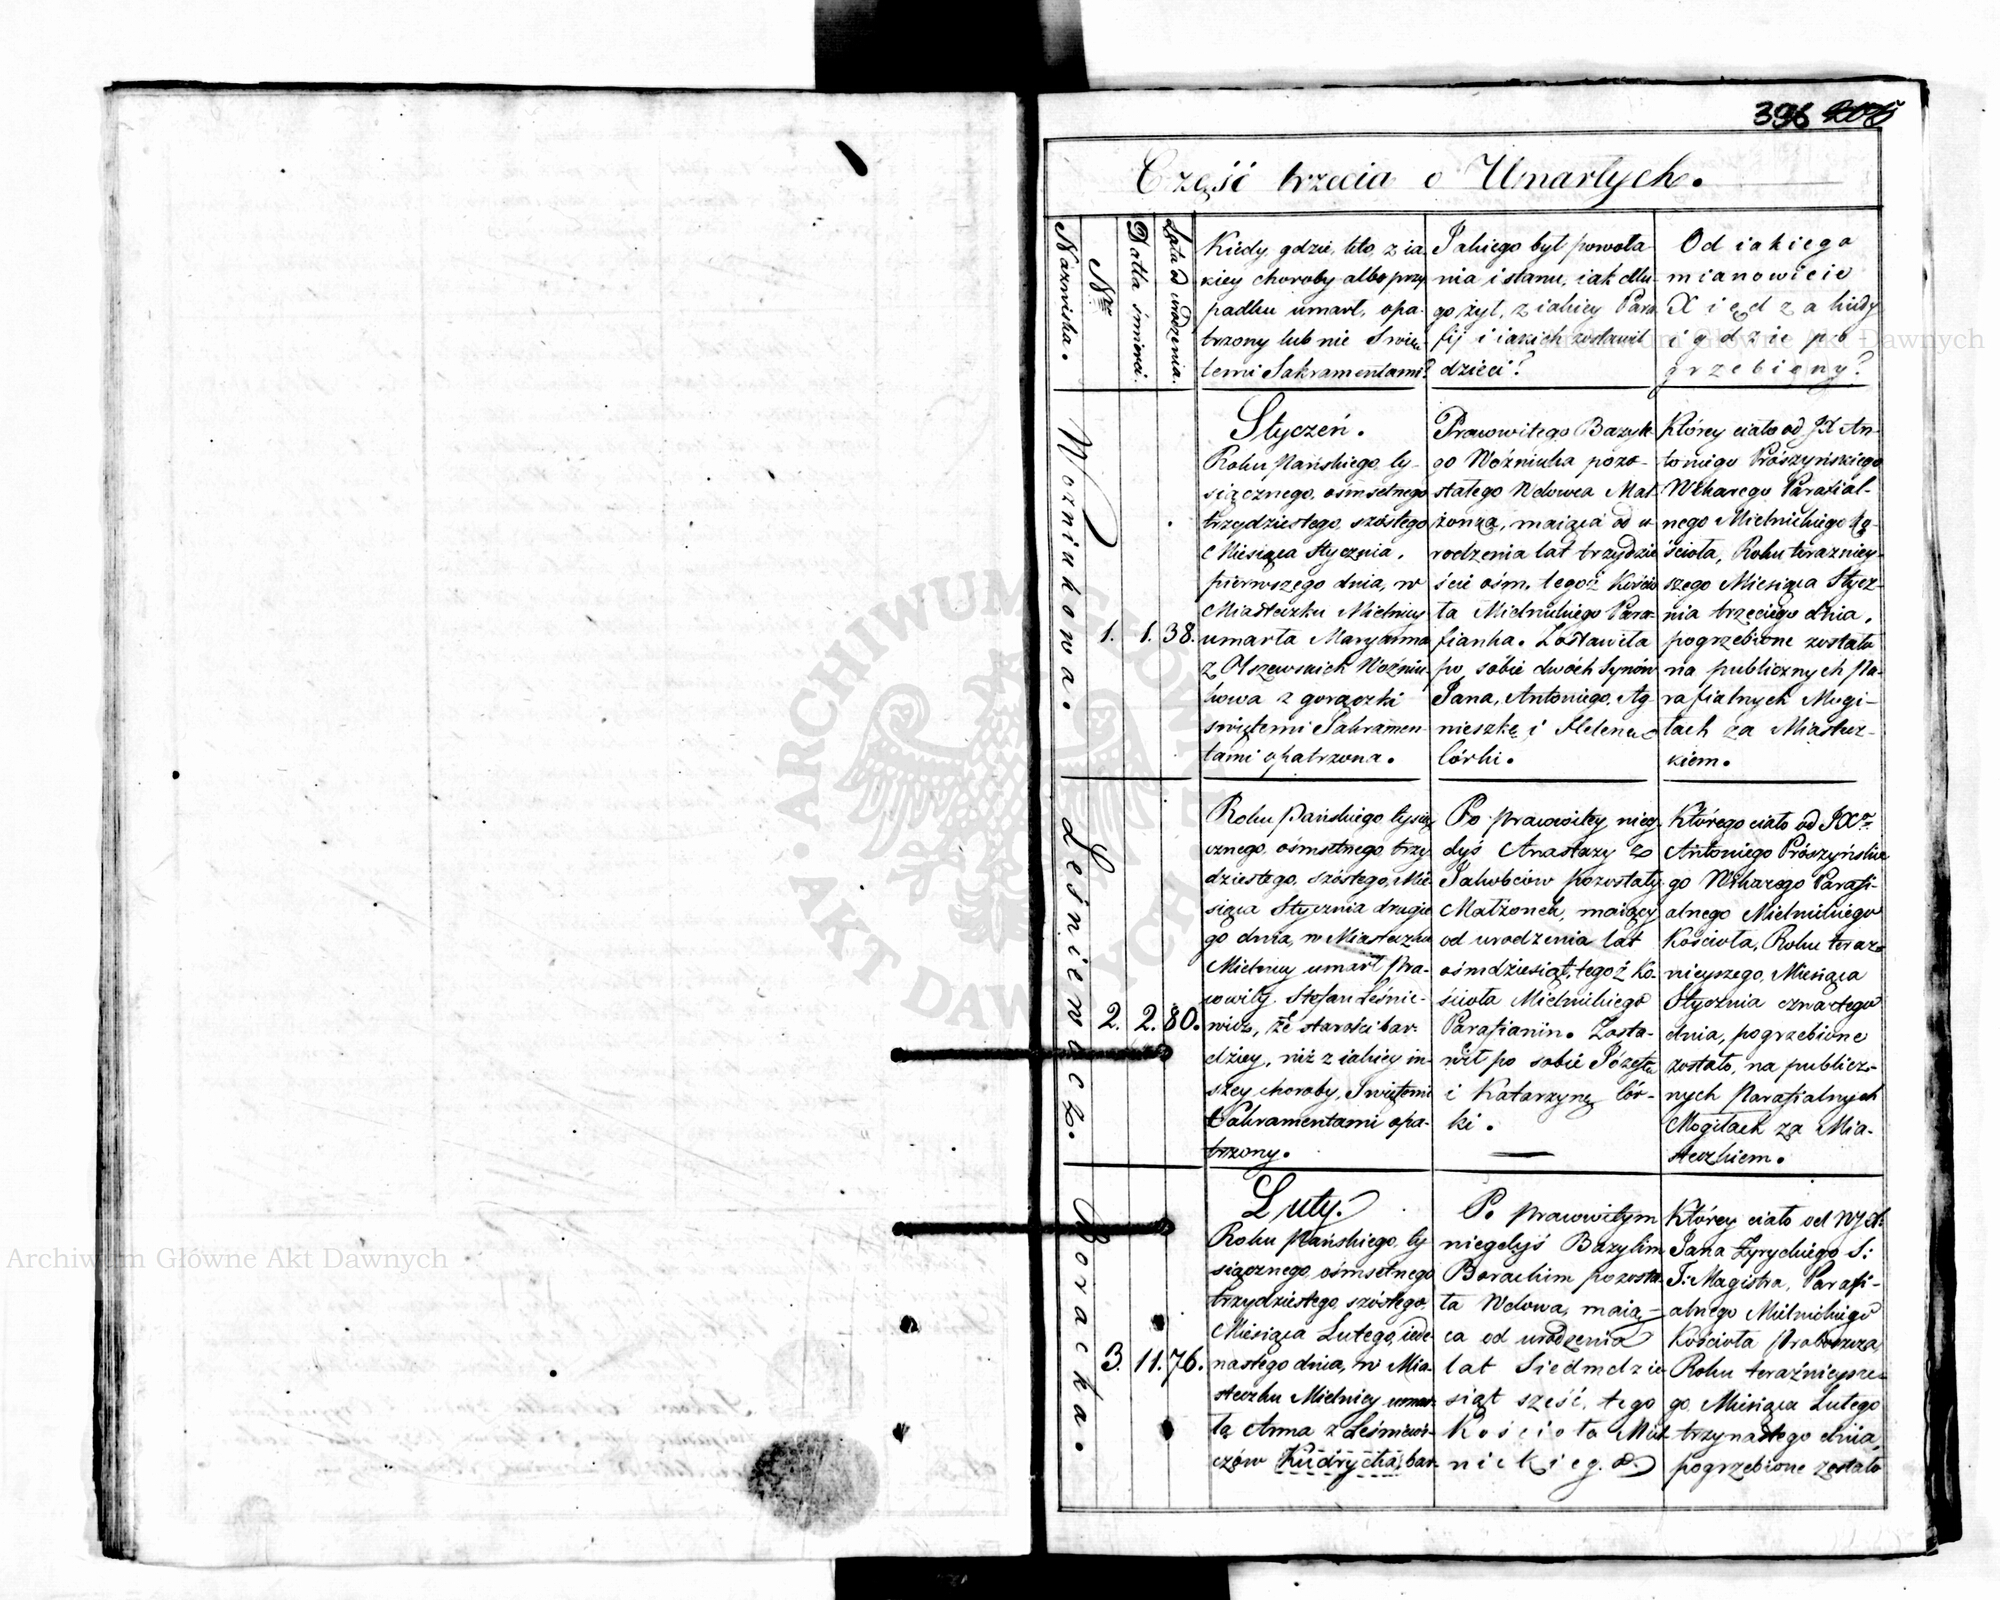 396
Część trzecia o Umarłych.
Nazwiska.
Nro
Datta śmierci.
Lata od urodzenia.
Kiedy, gdzie, kto, z ia-
kiey choroby albo przy
padku umarł, opa-
trzony lub nie Świę-
temi Sakramentami?
Jakiego był powoła-
nia i stanu, iak dłu-
go żył, z iakiey Para
fij i iakich zostawił
dzieci?
Od iakiego
mianowicie
Xiędza kiedy
i gdzie po
grzebiony?
Woźniukowa.
1.
1.
38.
Styczeń.
Roku Pańskiego, ty-
siącznego, ośmsetnego
trzydziestego, szóstego
Miesiąca Stycznia,
pierwszego dnia, w
Miasteczku Mielnicy
umarła Maryanna
z Olszewskich Woźniu-
kowa z gorączki
świętemi Sakramen-
tami opatrzona.
Prawowitego Bazyle-
go Woźniuka pozo-
stałego Wdowca Mał-
żonka, maiąca od u-
rodzenia lat trzydzie
ście ośm, tegoż Kościo
ła Mielnickiego Para-
fianka. Zostawiła
po sobie dwóch Synów
Jana, Antoniego, Ag-
nieszkę i Helenę
Córki.
Którey ciało od JX An-
toniego Prószyńskiego
Wikarego Parafial-
nego Mielnickiego Ko-
ścioła, Roku teraźniey-
szego Miesiąca Stycz-
nia trzeciego dnia,
pogrzebione zostało
na publicznych Pa-
rafialnych Mogi-
łach za Miastecz-
kiem.
Leśniewicz.
2.
2.
80.
Roku Pańskiego tysią
cznego, ośmsetnego, trzy
dziestego, szóstego, Mie-
siąca Stycznia drugie
go dnia, w Miasteczku
Mielnicy umarł Pra-
wowity Stefan Leśnie-
wicz, ze starości bar-
dziey, niż z iakiey in-
szey choroby, Świętemi
Sakramentami opa-
trzony.
Po prawowitey nieg-
dyś Anastazy z
Jakobców pozostały
Małżonek, maiący
od urodzenia lat
ośmdziesiąt, tegoż Ko-
ścioła Mielnickiego
Parafianin. Zosta-
wił po sobie Józefę
i Katarzynę Cór-
ki.
Którego ciało od JXa
Antoniego Prószyńskie
go Wikarego Parafi-
alnego Mielnickiego
Kościoła, Roku teraz-
nieyszego, Miesiąca
Stycznia czwartego
dnia, pogrzebione
zostało, na publicz-
nych Parafialnych
Mogiłach za Mia-
steczkiem.
Boraczka.
3.
11.
76.
Luty.
Roku Pańskiego, ty
siącznego, ośmsetnego
trzydziestego, szóstego,
Miesiąca Lutego, iede-
nastego dnia, w Mia-
steczku Mielnicy umar-
ła Anna z Leśniewi-
czów Kudrycka, bar-
Po prawowitym
niegdyś Bazylim
Borackim pozosta-
ła Wdowa, maią-
ca od urodzenia
lat Siedmdzie
siąt sześć, tego
Kościoła Miel-
nickieg. o.
Którey ciało od WJX.
Jana Zyryckiego S:
T: Magistra, Parafi-
alnego Mielnickiego
Kościoła Proboszcza,
Roku teraźnieysze-
go Miesiąca Lutego
trzynastego dnia,
pogrzebione zostało
Archiwum Główne Akt Dawnych
Archiwum Główne Akt Dawnych
ARCHIWUM GŁÓWNE AKT DAWNYCH